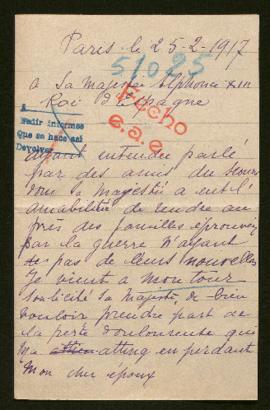 Paris le 25-2-1917
51025
a Sa majesté Alphonse XIII
Roi D'Espagne
Hecho
e.a.e.
A
Pedir informes
Que se hace así
Devolver
ayant entendu parlé
par des amis du
vous Sa Majestée a eut l'
amabilitée de rendre au
près des familles éprouvées
par la guerre n'ayant
pas de leurs nouvelles
Je vient a mon tour
solicité Sa Majesté, de bien
vouloir prendre part de
la perte douloureuse qui
ma atting en perdant
Mon cher epoux